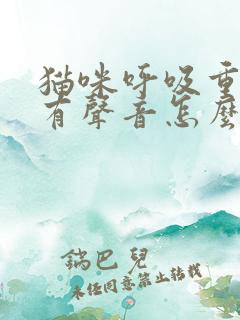 猫咪呼吸重
有聲音怎麼
鍋巴兒
未经同意禁止转载